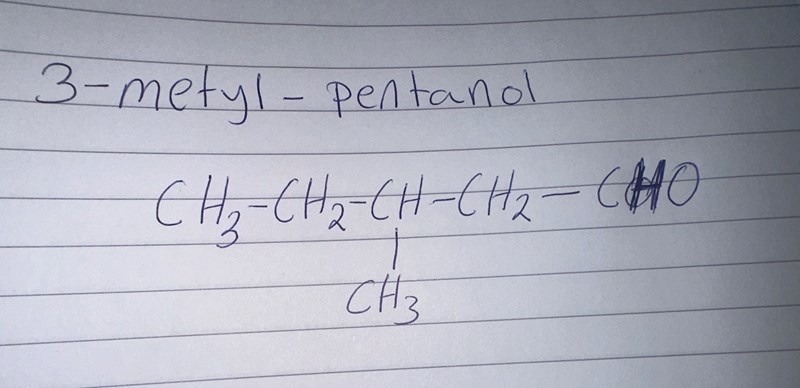 3-metyl-pentanol
CH3-CH2-CH-CH2-CHO
|
CH3